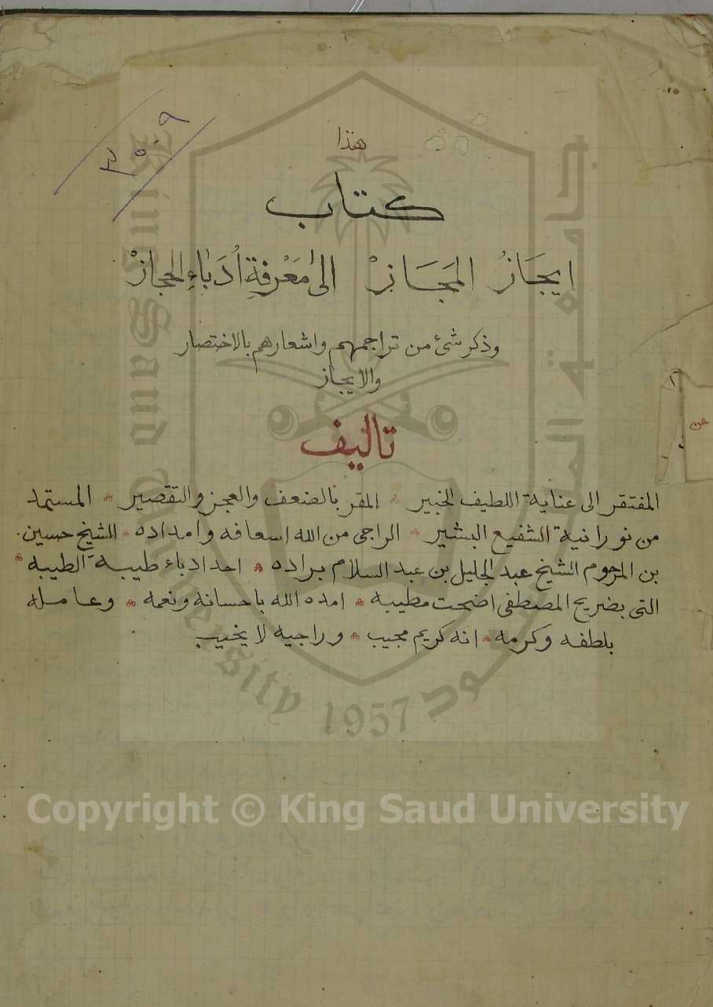 ٣٥٠٩
هذا
كتاب
ايجَازُ المَجَازْ الىٰ مَعْرفةِ اُدَباءِ الحجازْ
وذكر شئ من تراجمهم واشعارهم بالاختصار
والايجاز
تاليف
المفتقر الى عناية اللطيف الخبير * المقر بالضعف والعجز والتقصير * المستمد
من نورانية الشفيع البشير * الراجى من الله اسعافه وامداده * الشيخ حسين
بن المرحوم الشيخ عبد الجليل بن عبد السلام براده * احد ادباء طيبة الطيبه *
التى بضريح المصطفى اضحت مطيبه * امده الله باحسانه ونعمه * وعامله
بلطفه وكرمه * انه كريم مجيب * وراجيه لا يخيب
جامعة الملك سعود
King Saud University
1957
Copyright © King Saud University